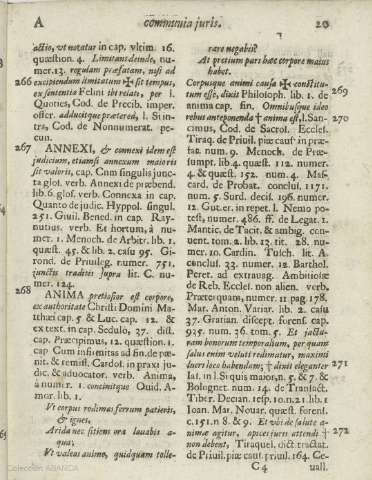 A communia juris. 20
actio, vt notatur in cap. vltim. 16.
quæstion. 4. Limitant deinde, nu-
mer. 13. regulam præfatam, nisi ad
266 excipiendum limitatum ✠ sit tempus,
ex sententia Felini ibi relati, per l.
Quoties, Cod. de Precib. imper.
offer. adducitque præterea, l. Si in-
tra, Cod. de Nonnumerat. pe-
cun.
267 ANNEXI, & connexi idem est
judicium, etiamsi annexum maioris
sit valoris, cap. Cum singulis junc-
ta glos. verb. Annexi de præbend.
lib. 6. glos. verb. Connexa in cap.
Quanto de judic. Hyppol. singul.
251. Guil. Bened. in cap. Ray-
nutius. verb. Et hortum, à nu-
mer. 1. Menoch. de Arbitr. lib. 1.
quæst. 45. & lib. 2. casu 97. Gi-
rond. de Priuileg. numer. 751.
junctis traditis supra lit. C. nu-
mer. 124.
268 ANIMA pretiosior est corpore,
ex authoritate Christi Domini Ma-
tthæi cap. 5 & Luc. cap. 12. &
ex text. in cap. Sedulo, 37. dist.
cap. Præcipimus, 12. quæstion. 1.
cap. Cum infirmitas ad fin. de pœ-
nit. & remiss. Cardos. in praxi ju-
dic. & aduocator. verb. Anima,
à numer. 1. concinitque Ouid. A-
mor. lib. 1.
Vt corpus redimas ferrum patieris,
& ignes,
Arida nec sitiens ora lauabis a-
qua;
Vt valeas animo, quidquam tolle-
rare negabis?
At pretium pars hæc corpore maius
habet.
Corpusque animi causa ✠ constitu- 269
tum esse, dixit Philosoph. lib. 1. de
anima cap. fin. Omnibusque ideo
rebus anteponenda † anima est, l. San- 270
cimus, Cod. de Sacros. Eccles.
Tiraq. de Priuil. piæ caus. in præ-
fat. num. 9. Menoch. de Præ-
sumpt. lib. 4. quæst. 112. numer.
4. & quæst. 152. num. 4. Mas-
card. de Probat. conclus. 1171.
num. 5. Surd. decis. 196. numer.
12. Gut. er. in repet. l. Nemo po-
test, numer. 486. ff. de Legat. 1.
Mantic. de Tacit. & ambig. con-
uent. tom. 2. lib. 13. tit. 28. nu-
mer. 10. Cardin. Tusch. lit. A.
conclus. 33. numer. 12. Barthol.
Peret. ad extrauag. Ambitiosæ
de Reb. Eccles. non alien. verb.
Præterquam, numer. 11. pag. 178.
Mar. Anton. Variar. lib. 2. casu
37. Gratian. discept. forens. cap.
935. num. 36. tom. 5. Et jactu-
ram bonorum temporalium, per quam
salus enim veluti redimatur, maximi
lucri loco habendam; † dixit eleganter 271
Ias. in l. Si quis maior, n. 5. & 7. &
Bolognet. num. 14. de Transact.
Tiber. Decian. resp. 10. n. 21. lib. 1
Ioan. Mar. Nouar. quæst. forens.
c. 151. n. 8. & 9. Et vbi de salute a-
nimæ agitur, apices juris attendi † 272
non debent, Tiraquel. dict. tractat.
de Priuil. piæ caus. priuil. 164. Ce-
C4 uall.
Colección ABANCA